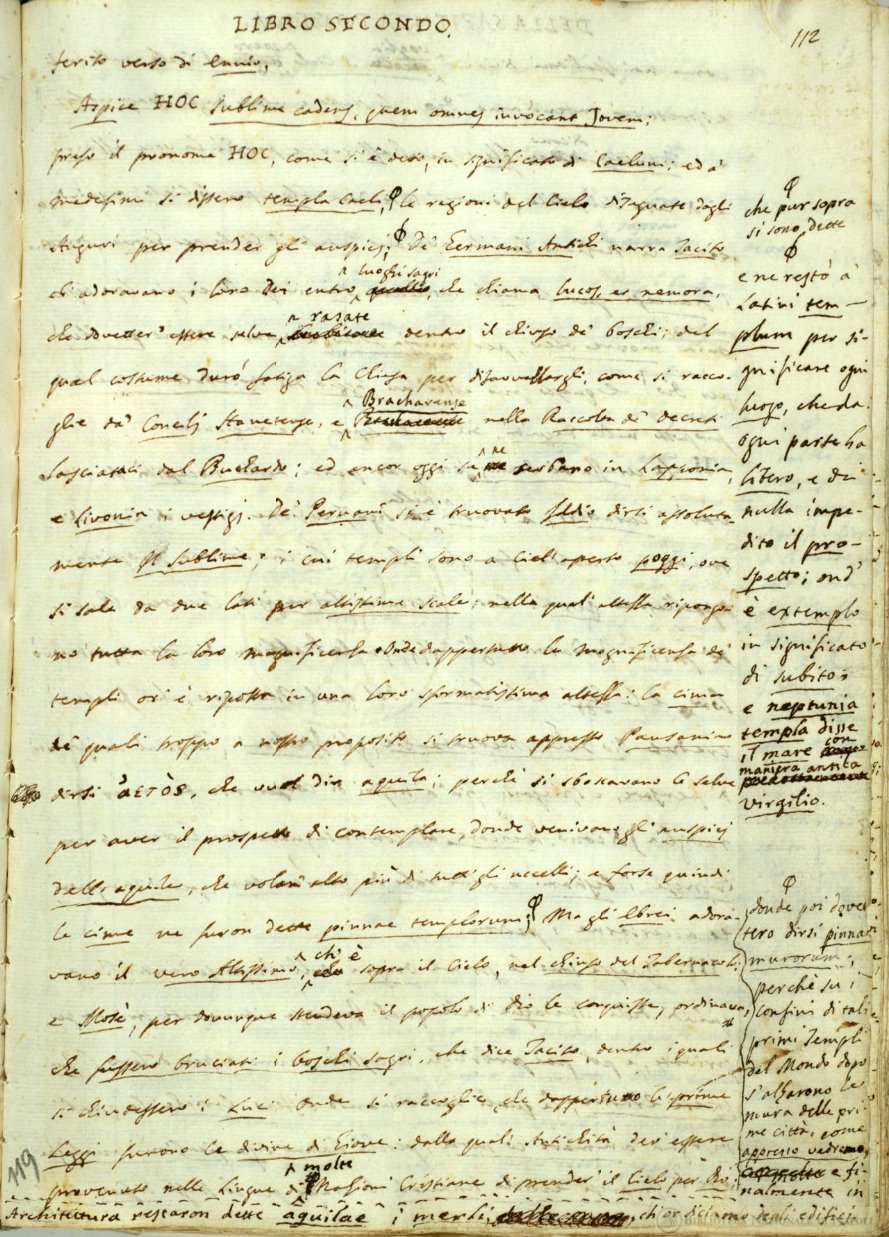 LIBRO SECONDO.
112
ferito verso di Ennio,
Aspice HOC sublime cadens, quem omnes invocant Jovem;
preso il pronome HOC, come si è detto, in significato di Caelum: ed a'
medesimi si dissero templa Caeli, le regioni del Cielo disegnate dagli
Auguri per prender gli auspicj; De' Germani Antichi narra Tacito
ch'adoravano i loro Dei entro luoghi sagri, che chiama lucos, et nemora,
che dovetter' essere selve rasate dentro il chiuso de' boschi; del
qual costume durò fatiga la Chiesa per disavvezzargli, come si racco-
glie da' Concilj Stanetense, e Brachavense nella Raccolta de' Decreti
lasciataci dal Buchardo; ed ancor oggi se ne serbano in Lapponia,
e Livonia i vestigj. De' Peruani si è truovato Iddio dirsi assoluta-
mente Il Sublime; i cui templi sono a ciel aperto poggi, ove
si sale da due lati per altissime scale; nella qual' altezza ripongo-
no tutta la loro magnificenza. Onde dappertutto la magnificenza de'
templi or' è riposta in una loro sformatissima altezza: la cima
de' quali troppo a nostro proposito si truova appresso Pausania
dirsi ἀετός, che vuol dir aquila; perchè si sboscavano le selve
per aver il prospetto di contemplare, donde venivano gli auspicj
dell'aquile, che volan' alto più di tutti gli uccelli; e forse quindi
le cime ne furon dette pinnae templorum; Ma gli Ebrei adora-
vano il vero Altissimo, ch'è sopra il Cielo, nel chiuso del Tabernacolo;
e Mosè, per dovunque stendeva il popolo di Dio le conquiste, ordinava,
che fussero bruciati i boschi sagri, che dice Tacito, dentro i quali
si chiudessero i Luci. Onde si raccoglie che dappertutto le prime
Leggi furono le divine di Giove: dalla qual' Antichità dev' essere
provenuto nelle Lingue di molte Nazioni Cristiane di prender' il Cielo per Dio;
che pur sopra
si sono dette
e ne restò a'
Latini tem-
plum per si-
gnificare ogni
luogo, che da
ogni parte ha
libero, e da
nulla impe-
dito il pro-
spetto; ond'
è extemplo
in significato
di subito;
e neptunia
templa disse
il mare con
maniera antica
Virgilio.
donde poi dovet-
tero dirsi pinnae
murorum;
perchè su i
confini di tali
primi Templi
del Mondo dopo
s'alzarono le
mura delle pri-
me città, come
appresso vedremo,
e fi-
nalmente in
Architettura restaron dette aquilae i merli, ch'or diciamo degli edificj
119